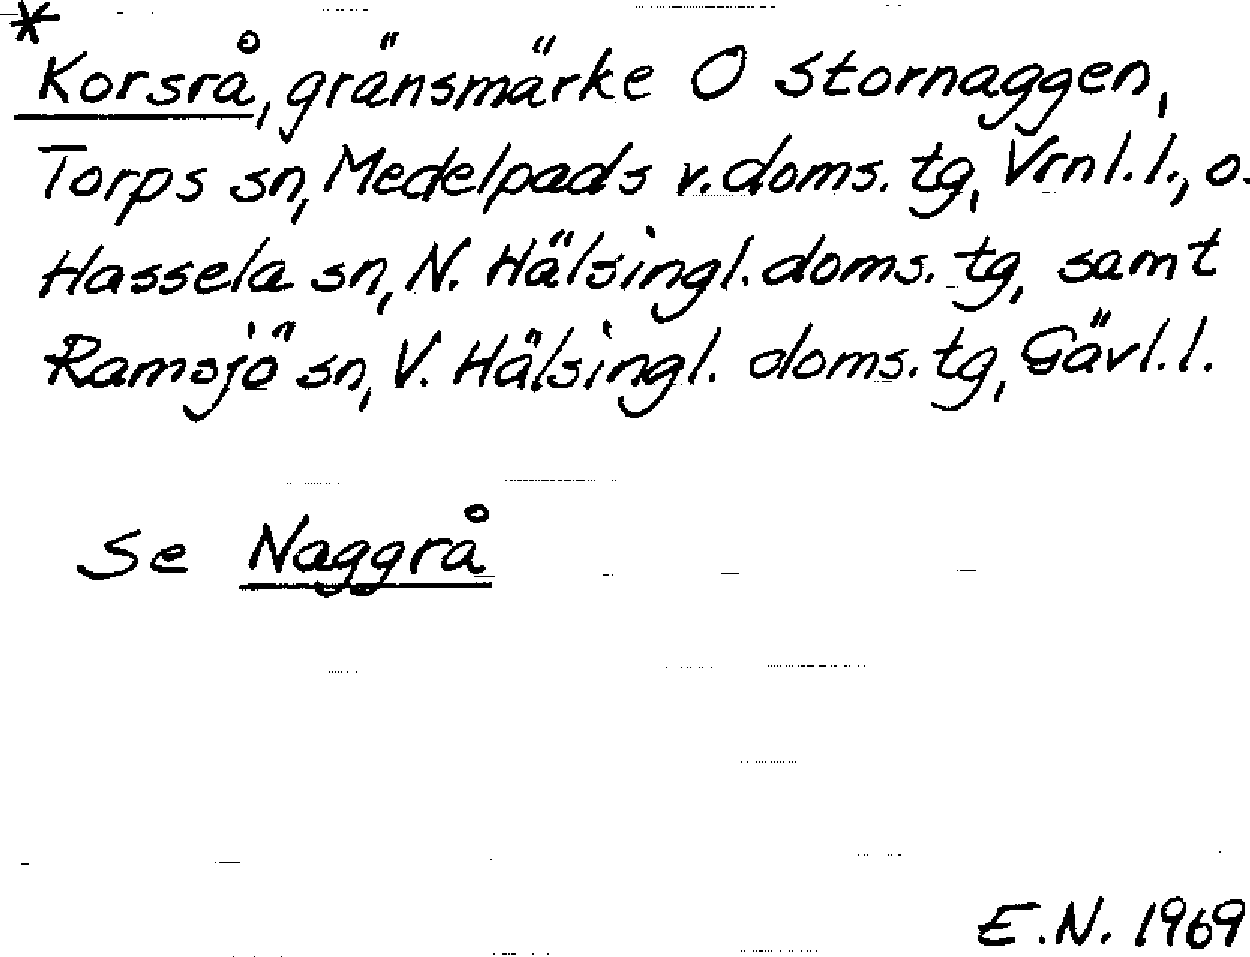 *
Korsrå, gränsmärke O Stornaggen,
Torps sn, Medelpads v. doms. tg, Vrnl. l., o.
Hassela sn, N. Hälsingl. doms. tg, samt
Ramsjö sn, V. Hälsingl. doms. tg, Gävl. l.
Se Naggrå
E.N. 1969